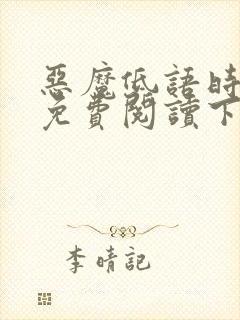 惡魔低語時
免費閱讀下
李晴記